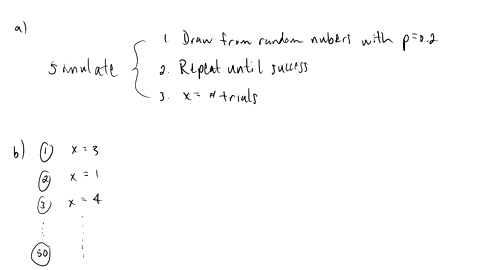 a)
1. Draw from random nubers with p=0.2
Simulate { 2. Repeat until success
3. x = # trials
b) ① x = 3
② x = 1
③ x = 4
⋮ ⋮
㊿